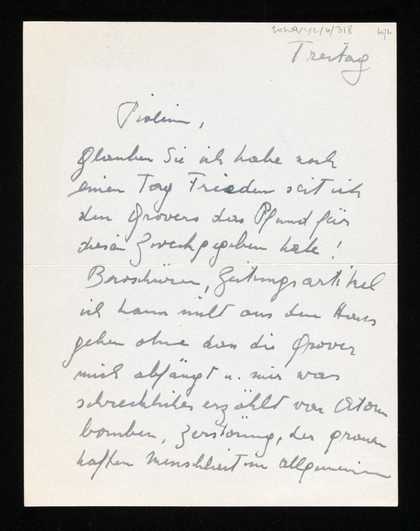 Freitag
Glauben Sie ich habe noch
einen Tag Frieden seit ich
den Grovers das Pfund für
diesen Zweck gegeben habe!
Broschüren, Zeitungsartikel
ich kann nicht aus dem Haus
gehen ohne dass die Grover
mich abfängt u. mir was
schreckliches erzählt von Atom
bomben, Zerstörung, der grauen
haften Menschheit im allgemeinen